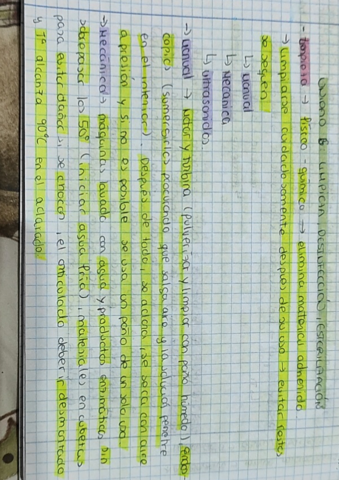 LIMPIEZA, DESINFECCIÓN, ESTERILIZACIÓN
- Limpieza → físico-química → elimina materia adherida
→ Limpiarse cuidadosamente después de su uso → evitar restos
se sequen
↳ Manual
↳ Mecánica
↳ Ultrasonidos
→ Manual → motor y turbina (pulverizar y limpiar con paño húmedo),
(sumergirlos procurando que salga aire y la solución penetre
en el interior). Después de todo, se aclara, se seca con aire
a presión y si no es posible se usa un paño de un solo uso
→ Mecánica → máquinas lavado con agua y productos enzimáticos sin
sobrepasar los 50º (iniciar agua fría), materiales en cubetas
para evitar daños, se choquen, el articulado debe ir desmontado
y Tª alcanza 90ºC en el aclarado